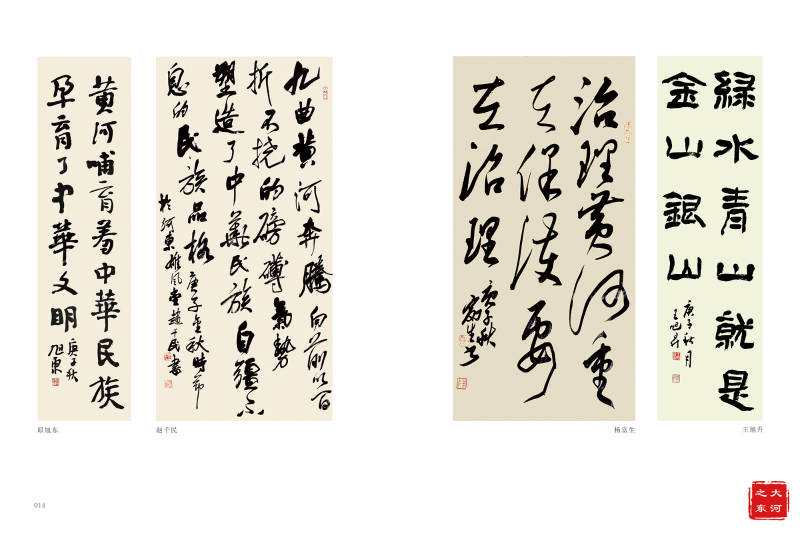 黄河哺育着中華民族
孕育了中華文明
庚子秋
旭東
原旭东
九曲黄河奔騰向前以百
折不撓的磅礴氣勢
塑造了中華民族自彊不
息的民族品格 庚子金秋時節
於河東雄風堂趙千民書
赵千民
治理黄河重
在保護要
在治理 庚子秋
富生書
杨富生
緑水青山就是
金山銀山
庚子秋月
王旭昇
王旭升
014
大河
之东